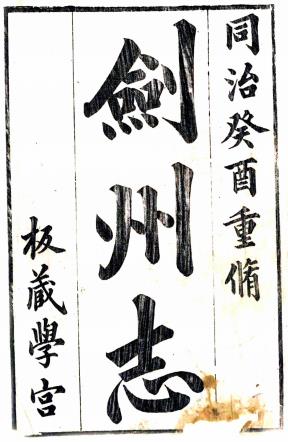 同治癸酉重脩
劍州志
板藏學宮